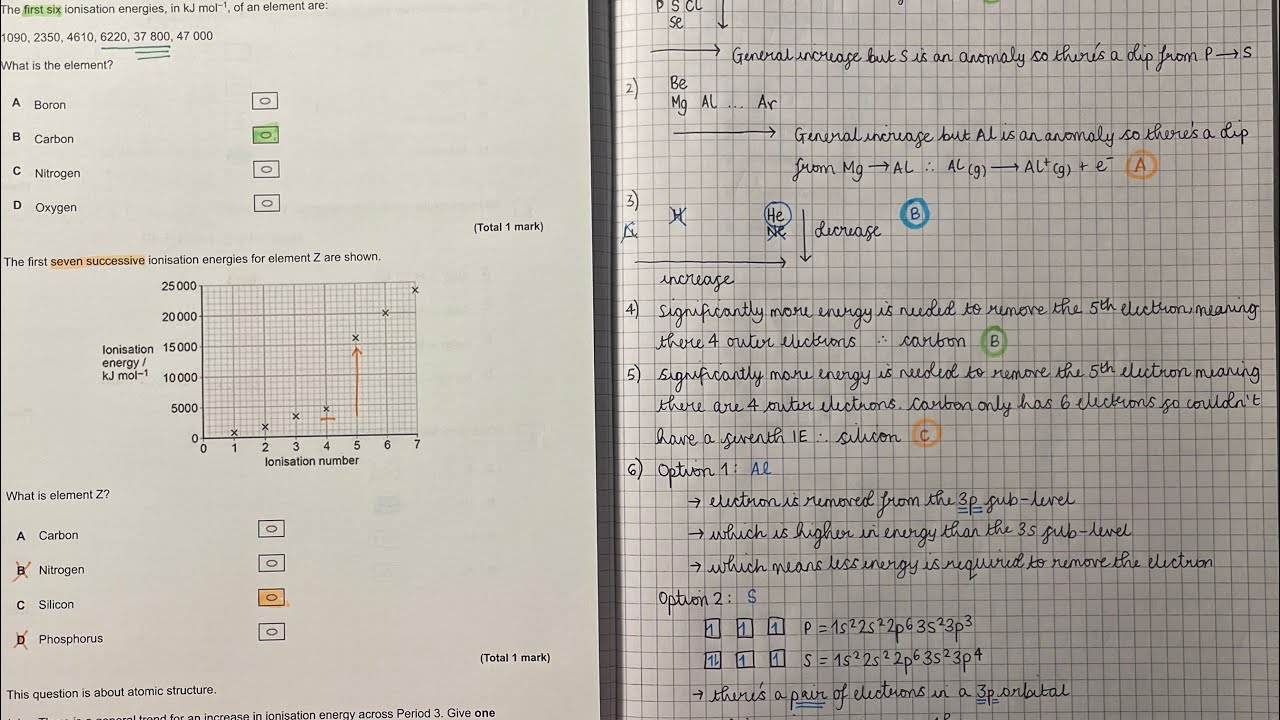 The first six ionisation energies, in kJ mol⁻¹, of an element are:
1090, 2350, 4610, 6220, 37 800, 47 000
What is the element?
A Boron
B Carbon
C Nitrogen
D Oxygen
(Total 1 mark)
The first seven successive ionisation energies for element Z are shown.
25 000
20 000
15 000
10 000
5000
0
Ionisation
energy /
kJ mol⁻¹
0 1 2 3 4 5 6 7
Ionisation number
What is element Z?
A Carbon
B Nitrogen
C Silicon
D Phosphorus
(Total 1 mark)
This question is about atomic structure.
general trend for an increase in ionisation energy across Period 3. Give one
P S Cl
Se
General increase but S is an anomaly so there's a dip from P → S
2) Be
Mg Al ... Ar
General increase but Al is an anomaly so there's a dip
from Mg → Al ∴ Al(g) → Al⁺(g) + e⁻ A
3)
H He B
K Ne decrease
increase
4) Significantly more energy is needed to remove the 5th electron, meaning
there 4 outer electrons ∴ carbon B
5) Significantly more energy is needed to remove the 5th electron meaning
there are 4 outer electrons. Carbon only has 6 electrons so couldn't
have a seventh IE ∴ silicon C
6) Option 1: Al
→ electron is removed from the 3p sub-level
→ which is higher in energy than the 3s sub-level
→ which means less energy is required to remove the electron
Option 2: S
1 1 1 P = 1s²2s²2p⁶3s²3p³
1l 1 1 S = 1s²2s²2p⁶3s²3p⁴
→ there's a pair of electrons in a 3p orbital